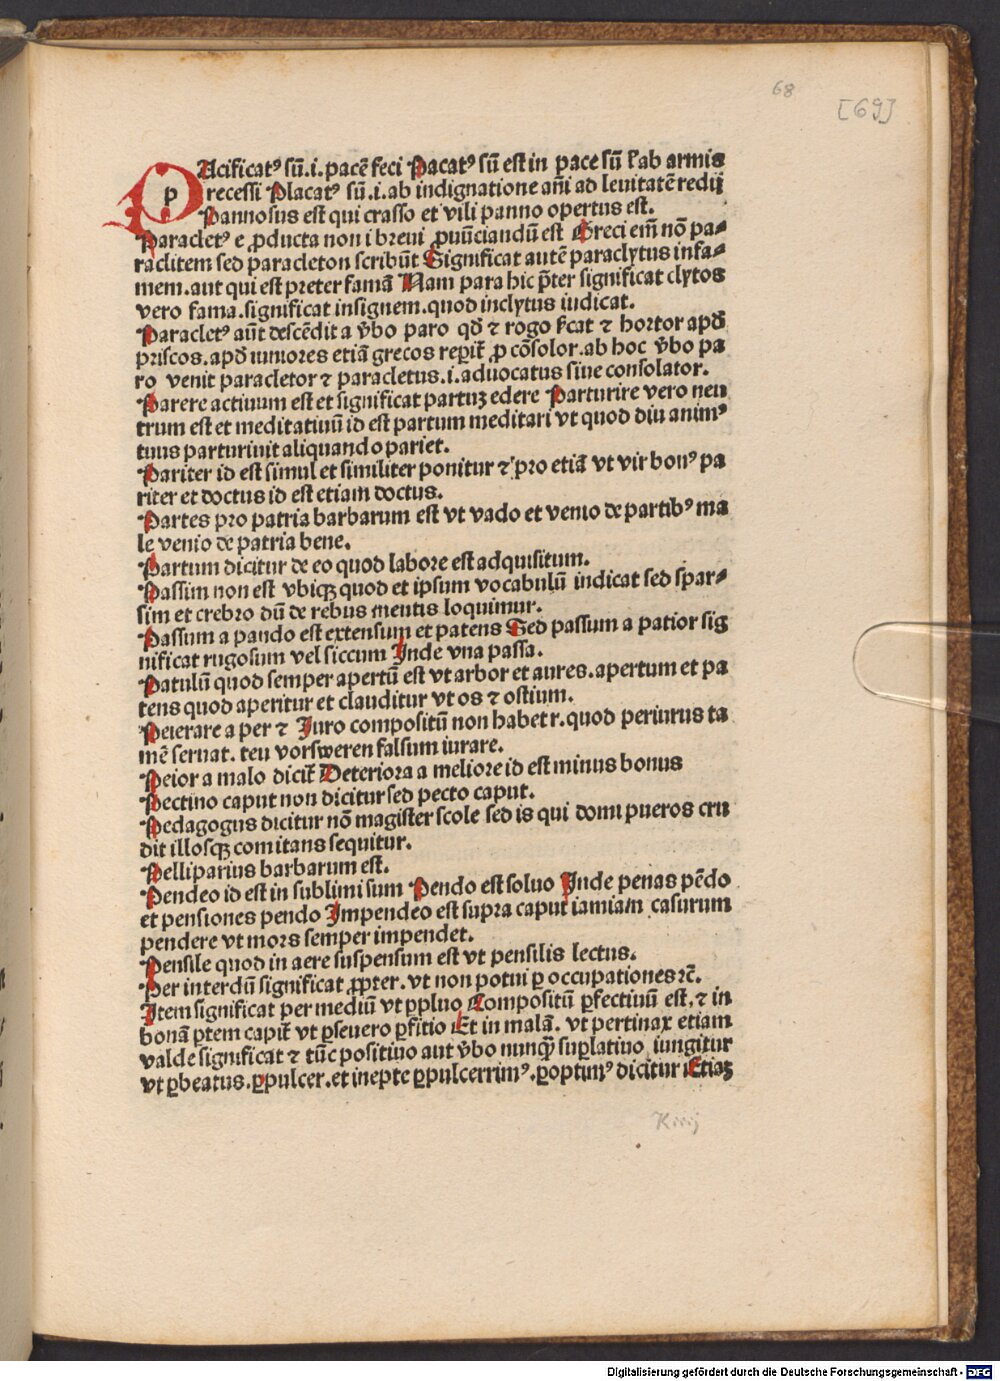 68
[69]
PAcificatꝰ sū.i.pacē feci Pacatꝰ sū est in pace sū ł ab armis
recessi Placatꝰ sū.i.ab indignatione aīi ad leuitatē redij
Pannosus est qui crasso et vili panno opertus est.
Paracletꝰ e ꝓducta non i breui ꝓnūciandū est Greci em̄ nō pa⸗
raclitem sed paracleton scribūt Significat autē paraclytus infa⸗
mem.aut qui est preter famā Nam para hic p̄ter significat clytos
vero fama.significat insignem.quod inclytus iudicat.
Paracletꝰ aūt descēdit a v̄bo paro qd̄ ⁊ rogo ſ̄cat ⁊ hortor apd̄
priscos.apd̄ iuniores etiā grecos reꝑit̄ ꝓ cōsolor.ab hoc v̄bo pa
ro venit paracletor ⁊ paracletus.i.aduocatus siue consolator.
Parere actiuum est et significat partuꝫ edere Parturire vero neu
trum est et meditatiuū id est partum meditari vt quod diu animꝰ
tuus parturiuit aliquando pariet.
Pariter id est simul et similiter ponitur ⁊ pro etiā vt vir bonꝰ pa
riter et doctus id est etiam doctus.
Partes pro patria barbarum est vt vado et venio de partibꝰ ma
le venio de patria bene.
Partum dicitur de eo quod labore est adquisitum.
Passim non est vbiqꝫ quod et ipsum vocabulū indicat sed spar⸗
sim et crebro dū de rebus mentis loquimur.
Passum a pando est extensum et patens Sed passum a patior sig
nificat rugosum vel siccum Inde vua passa.
Patulū quod semper apertū est vt arbor et aures.apertum et pa
tens quod aperitur et clauditur vt os ⁊ ostium.
Peierare a per ⁊ Iuro compositū non habet r.quod periurus ta
mē seruat. teu vorsweren falsum iurare.
Peior a malo dicit̄ Deteriora a meliore id est minus bonus
Pectino caput non dicitur sed pecto caput.
Pedagogus dicitur nō magister scole sed is qui domi pueros cru
dit illosqꝫ comitans sequitur.
Pelliparius barbarum est.
Pendeo id est in sublimi sum Pendo est soluo Inde penas pēdo
et pensiones pendo Impendeo est supra caput iamiam casurum
pendere vt mors semper impendet.
Pensile quod in aere suspensum est vt pensilis lectus.
Per interdū significat ꝓpter.vt non potui ꝑ occupationes ⁊c̄.
Item significat per mediū vt ꝑpluo Compositū ꝑfectiuū est.⁊ in
bonā ꝑtem capit̄ vt ꝑseuero ꝑfitio Et in malā. vt pertinax etiam
valde significat ⁊ tūc positiuo aut v̄bo nunqꝫ̄ suꝑlatiuo iungitur
vt ꝑbeatus.ꝑpulcer.et inepte ꝑpulcerrimꝰ.ꝑoptimꝰ dicitur Etiaꝫ
Kiiij
Digitalisierung gefördert durch die Deutsche Forschungsgemeinschaft - DFG